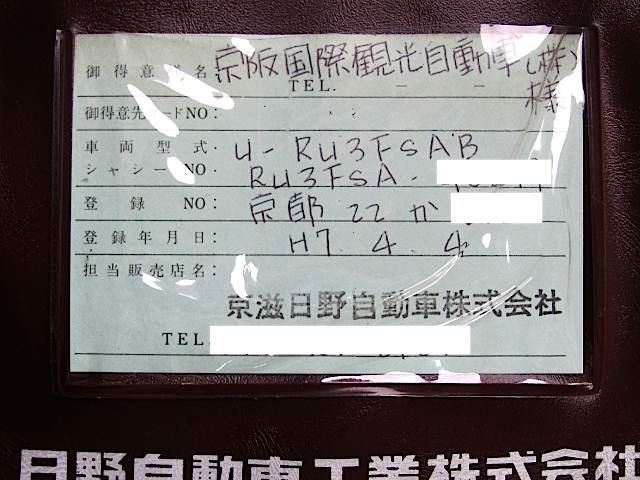 御得意先名 京阪国際観光自動車(株)
TEL. — — 様
御得意先コードNO:
車両型式: U-RU3FSAB
シャシーNO: RU3FSA-
登録NO: 京都 22 か
登録年月日: H7 4. 4
担当販売店名:
京滋日野自動車株式会社
TEL.
日野自動車工業株式会社